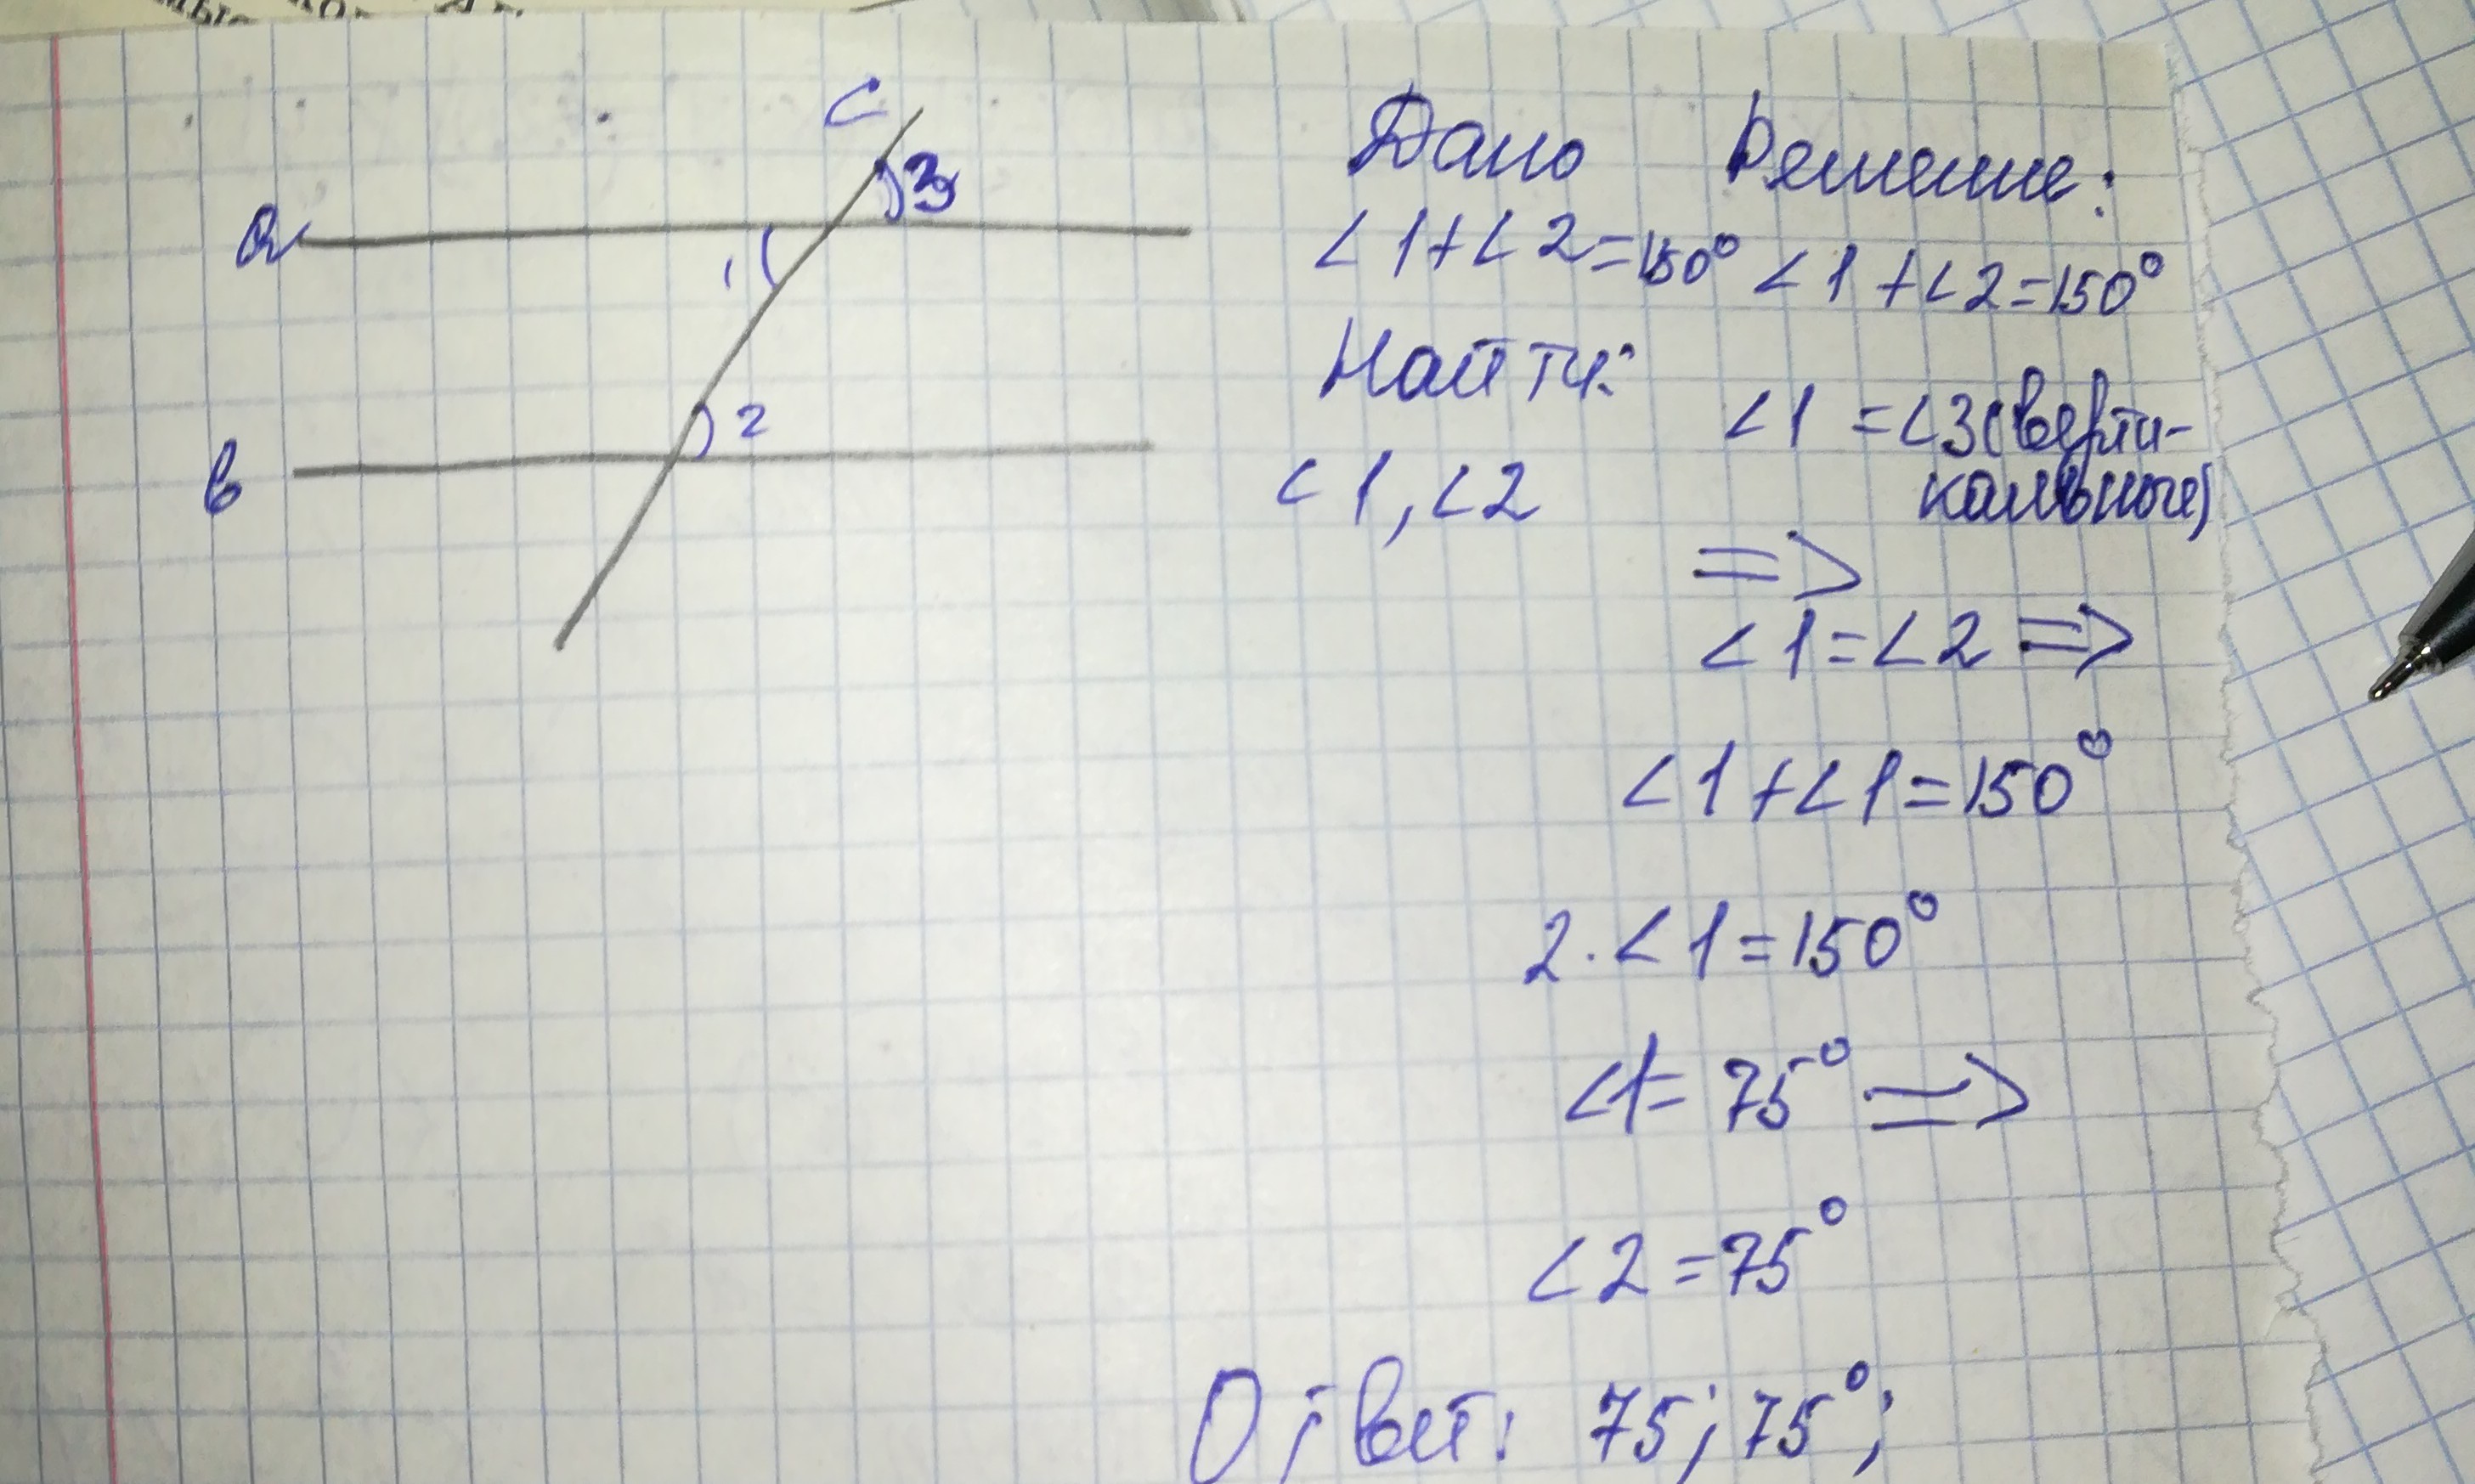 C
3
a
1
2
в
Дано
∠1+∠2=150°
Найти:
∠1, ∠2
Решение:
∠1+∠2=150°
∠1=∠3(верти-
кальные)
=>
∠1=∠2 =>
∠1+∠1=150°
2·∠1=150°
∠1=75° =>
∠2=75°
Ответ: 75; 75°;